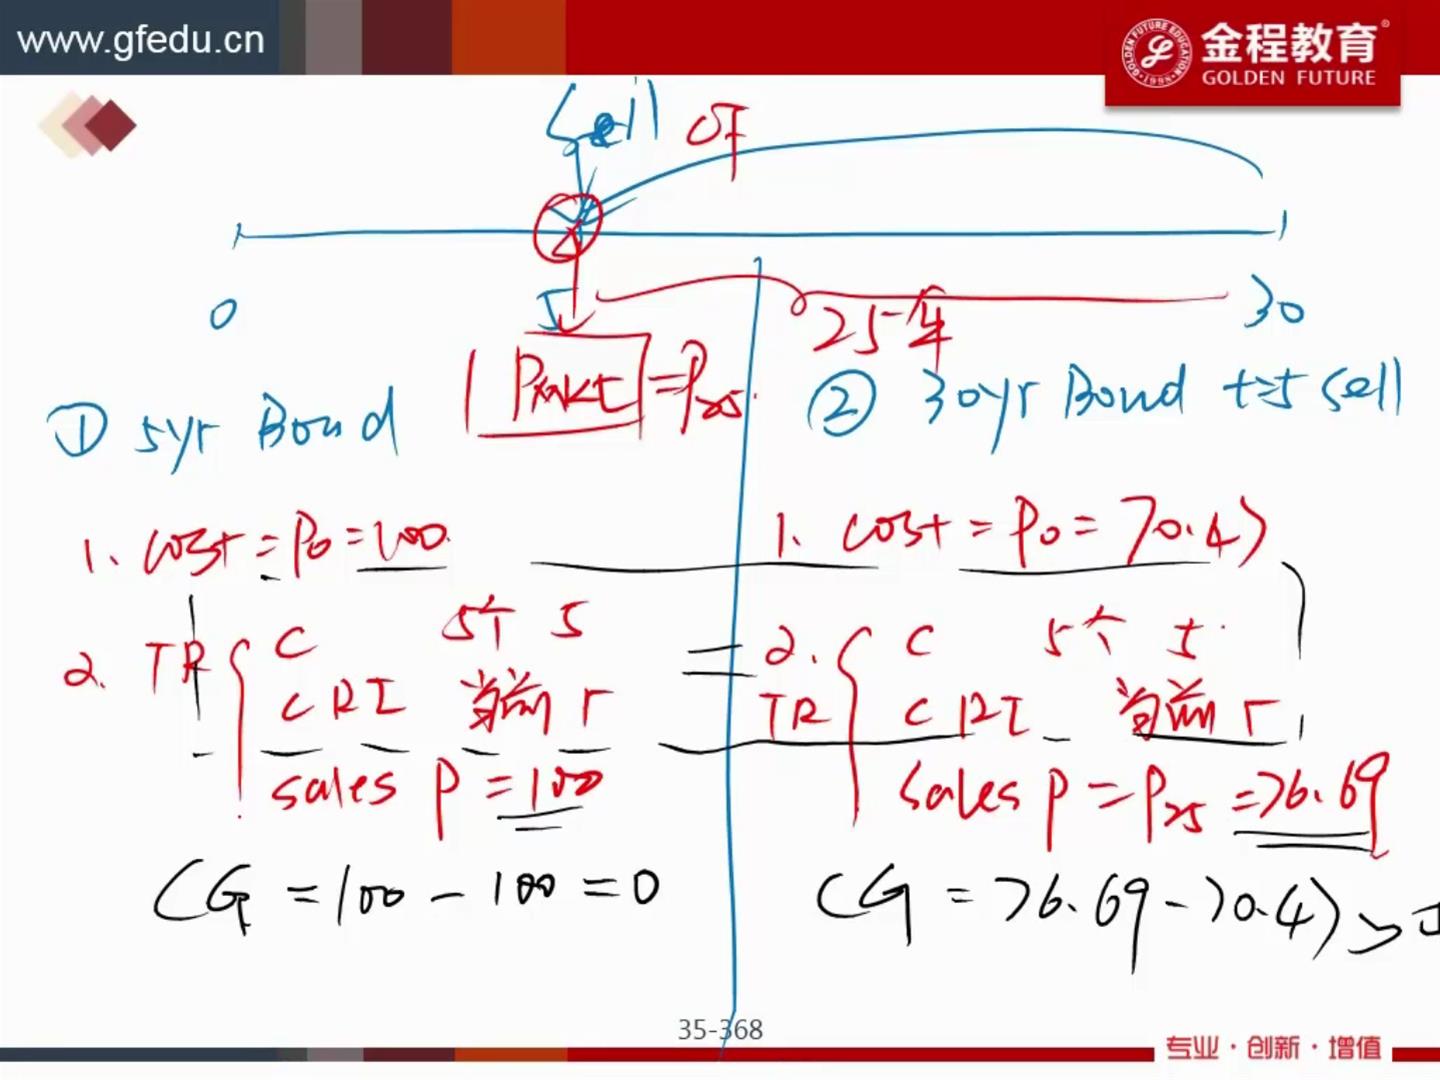 www.gfedu.cn
金程教育
GOLDEN FUTURE
GOLDEN FUTURE EDUCATION
1998
Sell
CF
0
5
30
25年
Pmkt = P25
① 5yr Bond
② 30yr Bond t=5 sell
1. cost = P0 = 100
1. cost = P0 = 70.47
2. TR
C 5个 5
CRI 当前 r
sales P = 100
=
2. TR
C 5个 5
CRI 当前 r
sales P = P25 = 76.69
CG = 100 - 100 = 0
CG = 76.69 - 70.47 >
35-368
专业·创新·增值